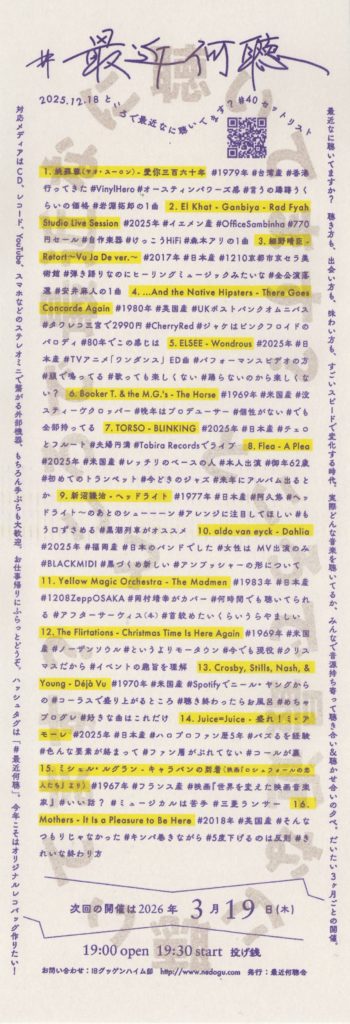 #最近何聴
2025.12.18 どこで最近なに聴いてます? #40セットリスト
1. 姚蘇蓉(ヤオ・スーロン) - 愛你三百六十年 #1979年 #台湾産 #香港
行ってきた #VinylHero #オースティンパワーズ感 #言うの躊躇うく
らいの価格 #岩淵拓郎の1曲 2. El Khat - Ganbiya - Rad Fyah
Studio Live Session #2025年 #イエメン産 #OfficeSambinha #770
円セール #自作楽器 #けっこうHiFi #森本アリの1曲 3. 細野晴臣 -
Retort〜Vu Ja De ver.〜 #2017年 #日本産 #1210京都市京セラ美
術館 #弾き語りなのにヒーリングミュージックみたいな #金公演落
選 #安井麻人の1曲 4. ...And the Native Hipsters - There Goes
Concorde Again #1980年 #英国産 #UKポストパンクオムニバス
#タワレコ三宮で2990円 #CherryRed #ジャケはピンクフロイドの
パロディ #80年てこの感じは 5. ELSEE - Wondrous #2025年 #日
本産 #TVアニメ「ワンダンス」ED曲 #パフォーマンスビデオの方
#頭で鳴ってる #歌っても楽しくない #踊らないのから楽しくな
い? 6. Booker T. & the M.G.'s - The Horse #1969年 #米国産 #没
スティーヴクロッパー #晩年はプロデューサー #個性がない #でも
全部持ってる 7. TORSO - BLINKING #2025年 #日本産 #チェロ
とフルート #夫婦円満 #Tobira Recordsでライブ 8. Flea - A Plea
#2025年 #米国産 #レッチリのベースの人 #本人出演 #御年62歳
#初めてのトランペット #今どきのジャズ #来年にアルバム出ると
か 9. 新沼謙治 - ヘッドライト #1977年 #日本産 #阿久悠 #ヘッ
ドライト〜のあとのシューーーン #アレンジに注目してほしい #も
う口ずさめる #黒潮列車がオススメ 10. aldo van eyck - Dahlia
#2025年 #福岡産 #日本のバンドでした #女性は MV出演のみ
#BLACKMIDI #黒づくめ新しい #アンプッシャーの形について
11. Yellow Magic Orchestra - The Madmen #1983年 #日本産
#1208ZeppOSAKA #岡村靖幸がカバー #何時間でも聴いてられ
る #アフターサーヴィス(本) #首絞めたいくらいうらやましい
12. The Flirtations - Christmas Time Is Here Again #1969年 #米国
産 #ノーザンソウル #というよりモータウン #今でも現役 #クリス
マスだから #イベントの趣旨を理解 13. Crosby, Stills, Nash, &
Young - Déjà Vu #1970年 #米国産 #Spotifyでニール・ヤングから
の #コーラスで盛り上がるところ #聴き終わったらお風呂 #めちゃ
プログレ #好きな曲はこれだけ 14. Juice=Juice - 盛れ!ミ・ア
モーレ #2025年 #日本産 #ハロプロファン歴5年 #バズるを経験
#色んな要素が絡まって #ファン層がぶれてない #コールが裏
15. ミシェル・ルグラン - キャラバンの到着(映画「ロシュフォールの恋
人たち」より) #1967年 #フランス産 #映画『世界を変えた映画音楽
家』 #いい話? #ミュージカルは苦手 #三菱ランサー 16.
Mothers - It Is a Pleasure to Be Here #2018年 #米国産 #そんな
つもりじゃなかった #キンパ巻きながら #5度下げるのは反則 #き
れいな終わり方
最近なに聴いてますか? 聴き方も、出会い方も、味わい方も、すごいスピードで変化する時代、実際どんな音楽を聴いてるか、みんなで音源持ち寄って聴き合い&聴かせ合いの夕べ。だいたい3ヶ月ごとの開催。
対応メディアはCD、レコード、YouTube、スマホなどのステレオミニで繋がる外部機器。もちろん手ぶらも大歓迎。お仕事帰りにふらっとどうぞ。ハッシュタグは「#最近何聴」。今年こそはオリジナルレコバッグ作りたい!
次回の開催は2026年 3月19日(木)
19:00 open 19:30 start 投げ銭
お問い合わせ:旧グッゲンハイム邸 http://www.nedogu.com 発行:最近何聴会